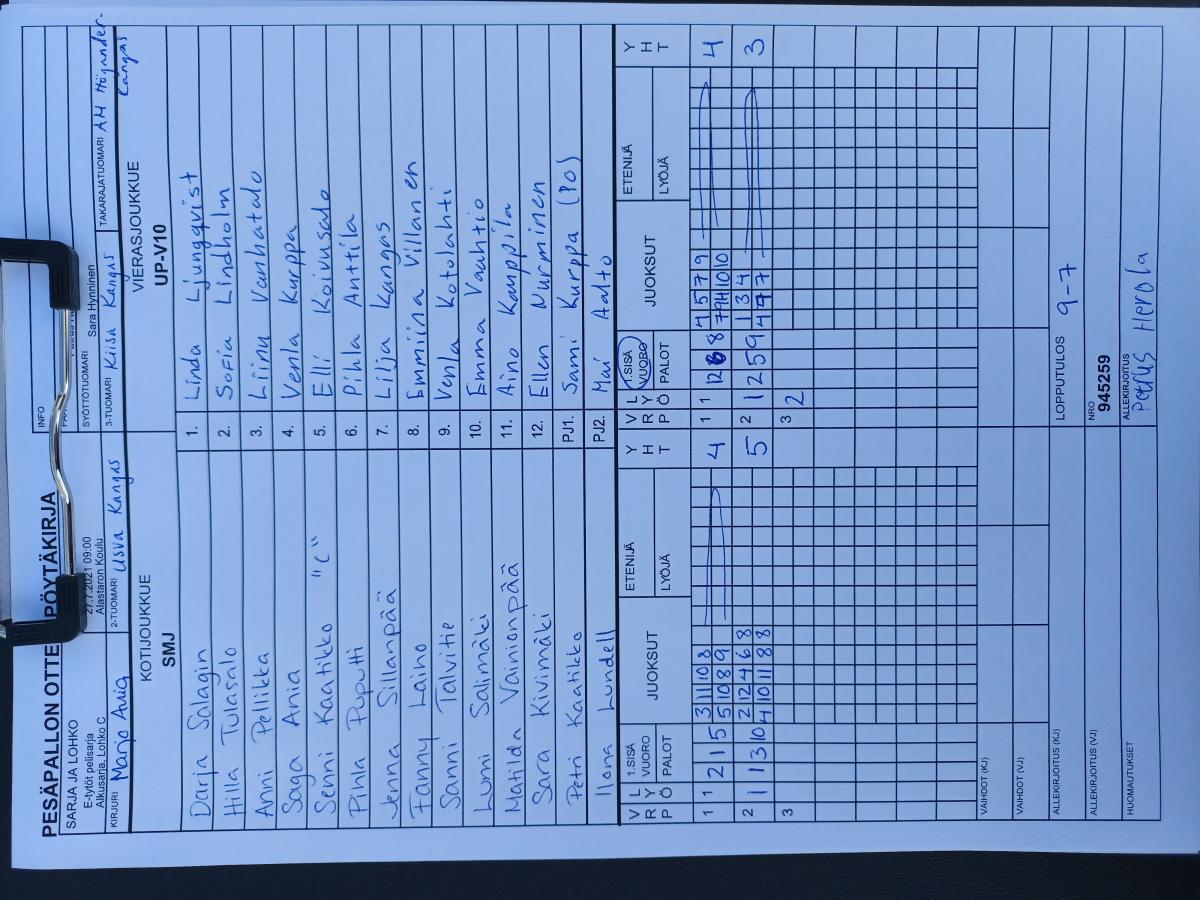 PESÄPALLON OTTE PÖYTÄKIRJA
INFO
SARJA JA LOHKO
E-tytöt pelisarja
Alkusarja, Lohko C
27.7.2021 09:00
Alastaron Koulu
SYÖTTÖTUOMARI
Sara Hynninen
KIRJURI Marjo Ania
2-TUOMARI Usva Kangas
3-TUOMARI Kiisa Kangas
TAKARAJATUOMARI AH Höijander-
Kangas
KOTIJOUKKUE
SMJ
VIERASJOUKKUE
UP-V10
Darja Salagin 1. Linda Ljungqvist
Hilla Tulasalo 2. Sofia Lindholm
Anni Pellikka 3. Liinu Vanhatalo
Saga Ania 4. Venla Kurppa
Senni Kaatikko "C" 5. Elli Koivusalo
Pihla Puputti 6. Pihla Anttila
Jenna Sillanpää 7. Lilja Kangas
Fanny Laiho 8. Emmiina Villanen
Sanni Talvitie 9. Venla Kotolahti
Lumi Salimäki 10. Emma Vaahtio
Matilda Vainionpää 11. Aino Kauppila
Sara Kivimäki 12. Ellen Nurminen
Petri Kaatikko PJ1. Sami Kurppa (PO)
Ilona Lundell PJ2. Mai Aalto
V R P
L Y Ö
1.SISÄ VUORO
PALOT
JUOKSUT
ETENIJÄ
LYÖJÄ
Y H T
V R P
L Y Ö
1.SISÄ VUORO
PALOT
JUOKSUT
ETENIJÄ
LYÖJÄ
Y H T
1 1 2 1 5 3 11 10 8 4 1 1 12 8 4 5 7 9 4
5 10 8 9 10 10
2 1 1 3 10 2 12 4 6 8 5 2 1 2 5 9 1 3 4 3
4 10 11 8 8 4 7 7
3 3 2
VAIHDOT (KJ)
VAIHDOT (VJ)
ALLEKIRJOITUS (KJ)
LOPPUTULOS 9-7
ALLEKIRJOITUS (VJ)
NRO
945259
HUOMAUTUKSET
ALLEKIRJOITUS
Petrus Herola